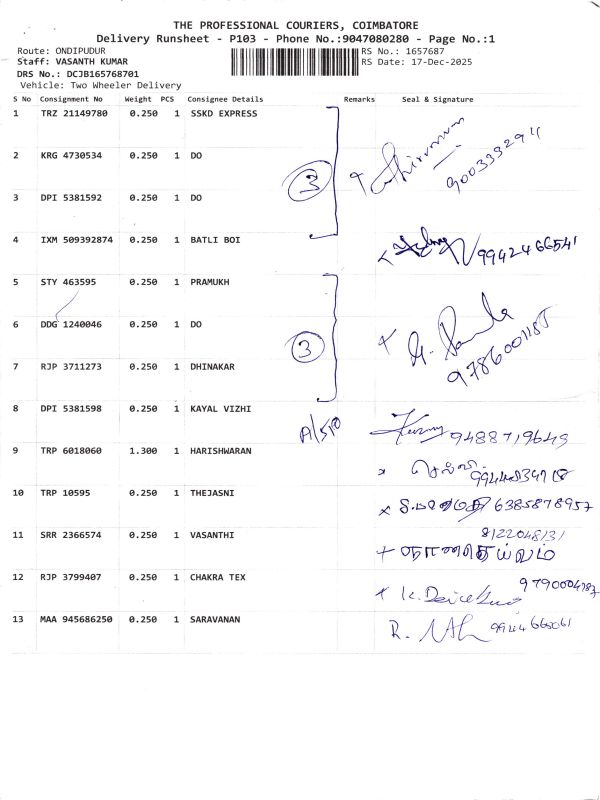 THE PROFESSIONAL COURIERS, COIMBATORE
Delivery Runsheet - P103 - Phone No.:9047080280 - Page No.:1
Route: ONDIPUDUR
Staff: VASANTH KUMAR RS No.: 1657687
DRS No.: DCJB165768701 RS Date: 17-Dec-2025
Vehicle: Two Wheeler Delivery
S No Consignment No Weight PCS Consignee Details Remarks Seal & Signature
1 TRZ 21149780 0.250 1 SSKD EXPRESS
9003332911
2 KRG 4730534 0.250 1 DO
3
3 DPI 5381592 0.250 1 DO
4 IXM 509392874 0.250 1 BATLI BOI 9942466541
5 STY 463595 0.250 1 PRAMUKH
6 DDG 1240046 0.250 1 DO
3
7 RJP 3711273 0.250 1 DHINAKAR
8 DPI 5381598 0.250 1 KAYAL VIZHI
9488719649
9 TRP 6018060 1.300 1 HARISHWARAN
செல்வி
10 TRP 10595 0.250 1 THEJASNI
6385878957
11 SRR 2366574 0.250 1 VASANTHI 8122048131
12 RJP 3799407 0.250 1 CHAKRA TEX
13 MAA 945686250 0.250 1 SARAVANAN R. 9944665061